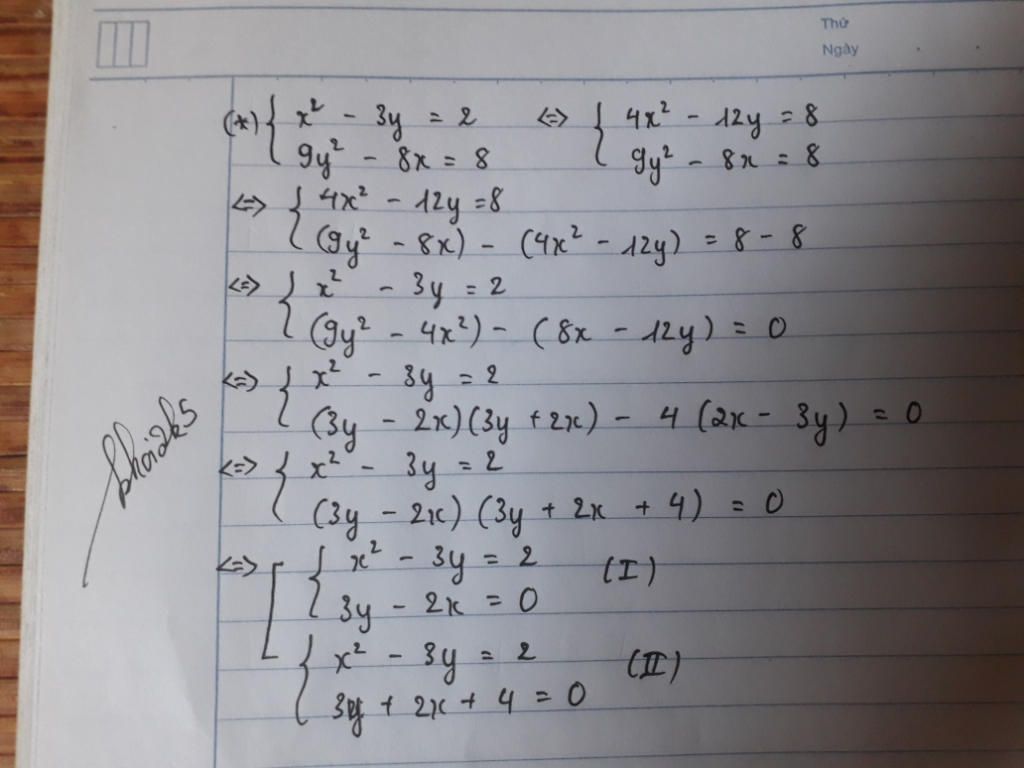 Thứ
Ngày
(*) { x² - 3y = 2 <=> { 4x² - 12y = 8
9y² - 8x = 8 9y² - 8x = 8
<=> { 4x² - 12y = 8
(9y² - 8x) - (4x² - 12y) = 8 - 8
<=> { x² - 3y = 2
(9y² - 4x²) - (8x - 12y) = 0
<=> { x² - 3y = 2
(3y - 2x)(3y + 2x) - 4(2x - 3y) = 0
<=> { x² - 3y = 2
(3y - 2x)(3y + 2x + 4) = 0
<=> [ { x² - 3y = 2 (I)
3y - 2x = 0
{ x² - 3y = 2 (II)
3y + 2x + 4 = 0
khoi2k5